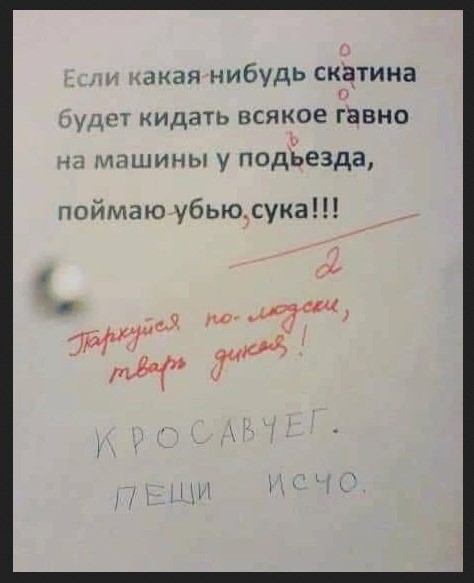 Если какая-нибудь скатина
будет кидать всякое гавно
на машины у подьезда,
поймаю-убью,сука!!!
о
о
ъ
2
Паркуйся по-людски,
тварь дикая!
КРОСАВЧЕГ.
ПЕШИ ИСЧО.